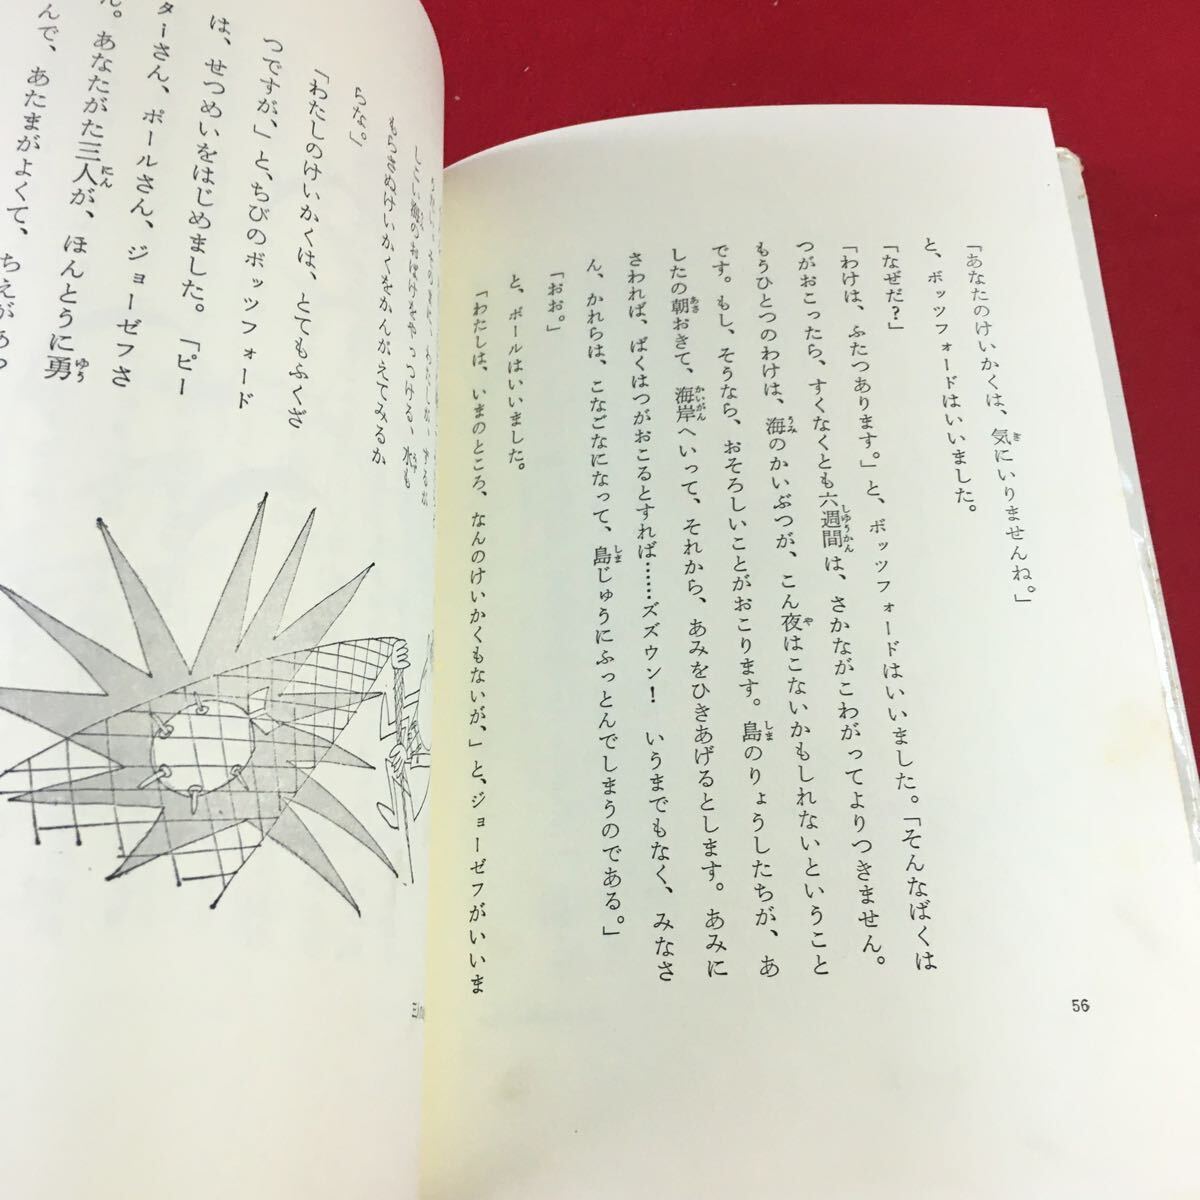 「あなたのけいかくは、気にいりませんね。」
と、ボッツフォードはいいました。
「なぜだ？」
「わけは、ふたつあります。」と、ボッツフォードはいいました。「そんなばくは
つがおこったら、すくなくとも六週間は、さかながこわがってよりつきません。
もうひとつのわけは、海のかいぶつが、こん夜はこないかもしれないということ
です。もし、そうなら、おそろしいことがおこります。島のりょうしたちが、あ
したの朝おきて、海岸へいって、それから、あみをひきあげるとします。あみに
さわれば、ばくはつがおこるとすれば……ズズウン！　いうまでもなく、みなさ
ん、かれらは、こなごなになって、島じゅうにふっとんでしまうのである。」
「おお。」
と、ポールはいいました。
「わたしは、いまのところ、なんのけいかくもないが、」と、ジョーゼフがいいま
56
しどい海のおばけをやっつける、水も
もらさぬけいかくをかんがえてみるか
らな。」
「わたしのけいかくは、とてもふくざ
つですが、」と、ちびのボッツフォード
は、せつめいをはじめました。「ピー
ターさん、ポールさん、ジョーゼフさ
ん。あなたがた三人が、ほんとうに勇
んで、あたまがよくて、ちえがあっ